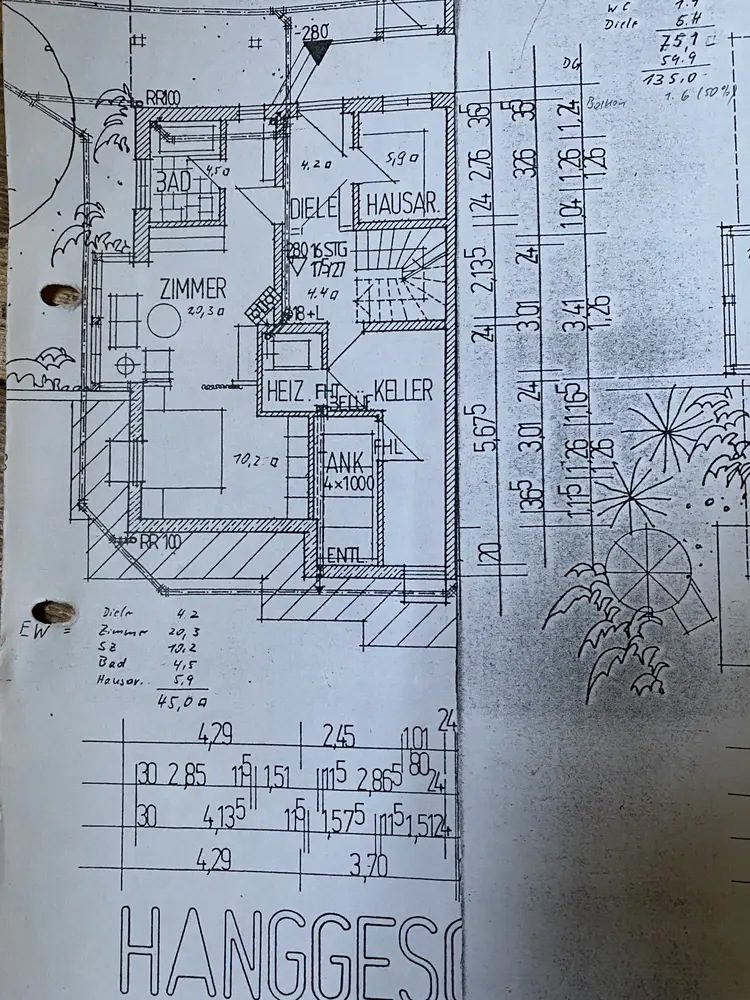 WC 1.9
Diele 5.4
75,1 □
59.9
135,0
1.6 (50%)
DG
Balkon
-280
RR100
BAD
4,5 □
4.2 □
5,9 □
DIELE
HAUSAR.
280 16 STG
17,5/27
4.4 □
ZIMMER
20,3 □
18+L
HEIZ.
FHT
KELLER
FHL
10,2 □
TANK
4x1000
RR 100
ENTL.
36⁵ 2,76 24 2,13⁵ 24 5,67⁵ 20
36⁵ 3,26 24 3,01 24 3,01 36⁵
1,24 1,26 1,04 3,41 1,16⁵ 1,26 1,15
1,26 1,26 1,26
EW =
Diele 4.2
Zimmer 20,3
SZ 10.2
Bad 4,5
Hausar. 5,9
45,0 □
4,29 2,45 1,01 24
30 2,85 11⁵ 1,51 11⁵ 2,86⁵ 80 24
30 4,13⁵ 11⁵ 1,57⁵ 11⁵ 1,51 24
4,29 3,70
HANGGESC